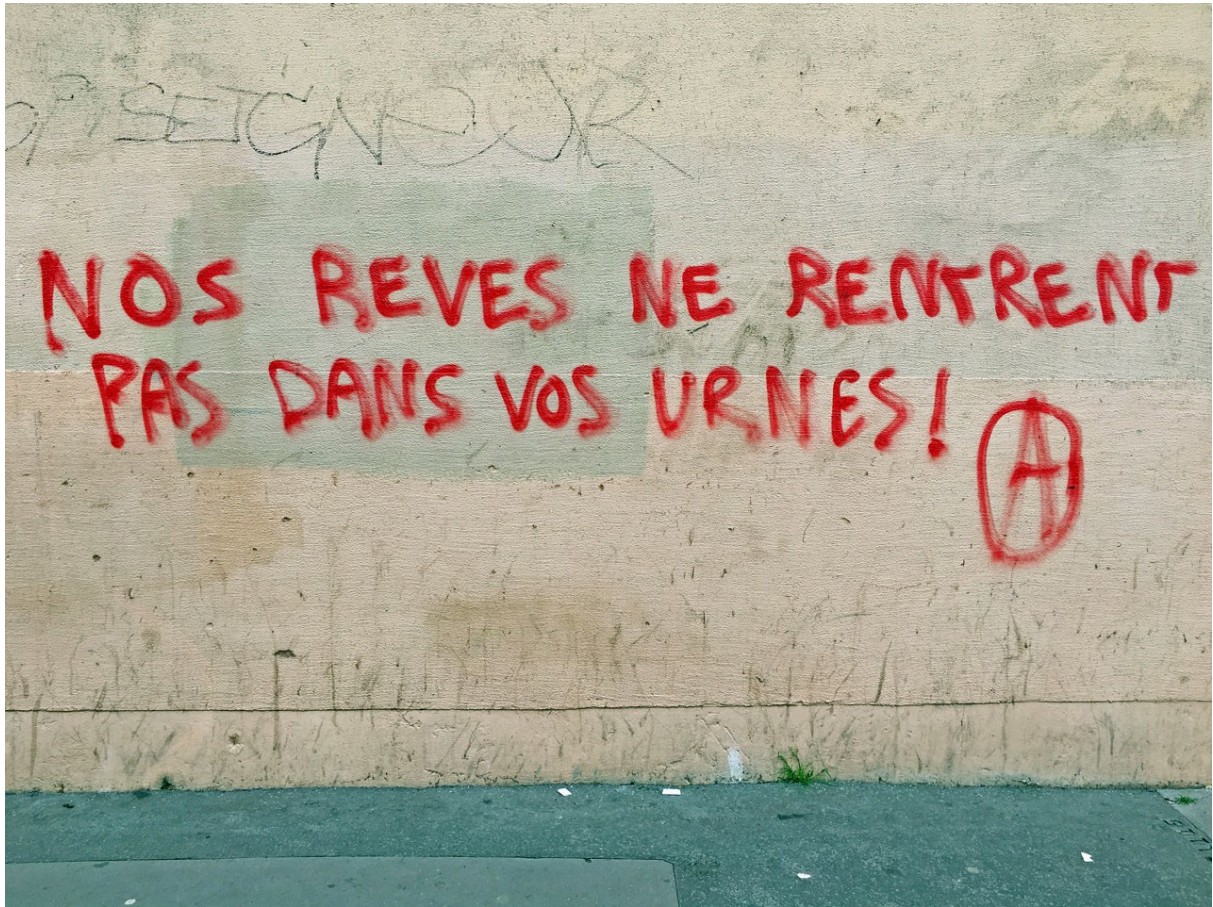 SEIGNEUR
NOS REVES NE RENTRENT
PAS DANS VOS URNES!
A